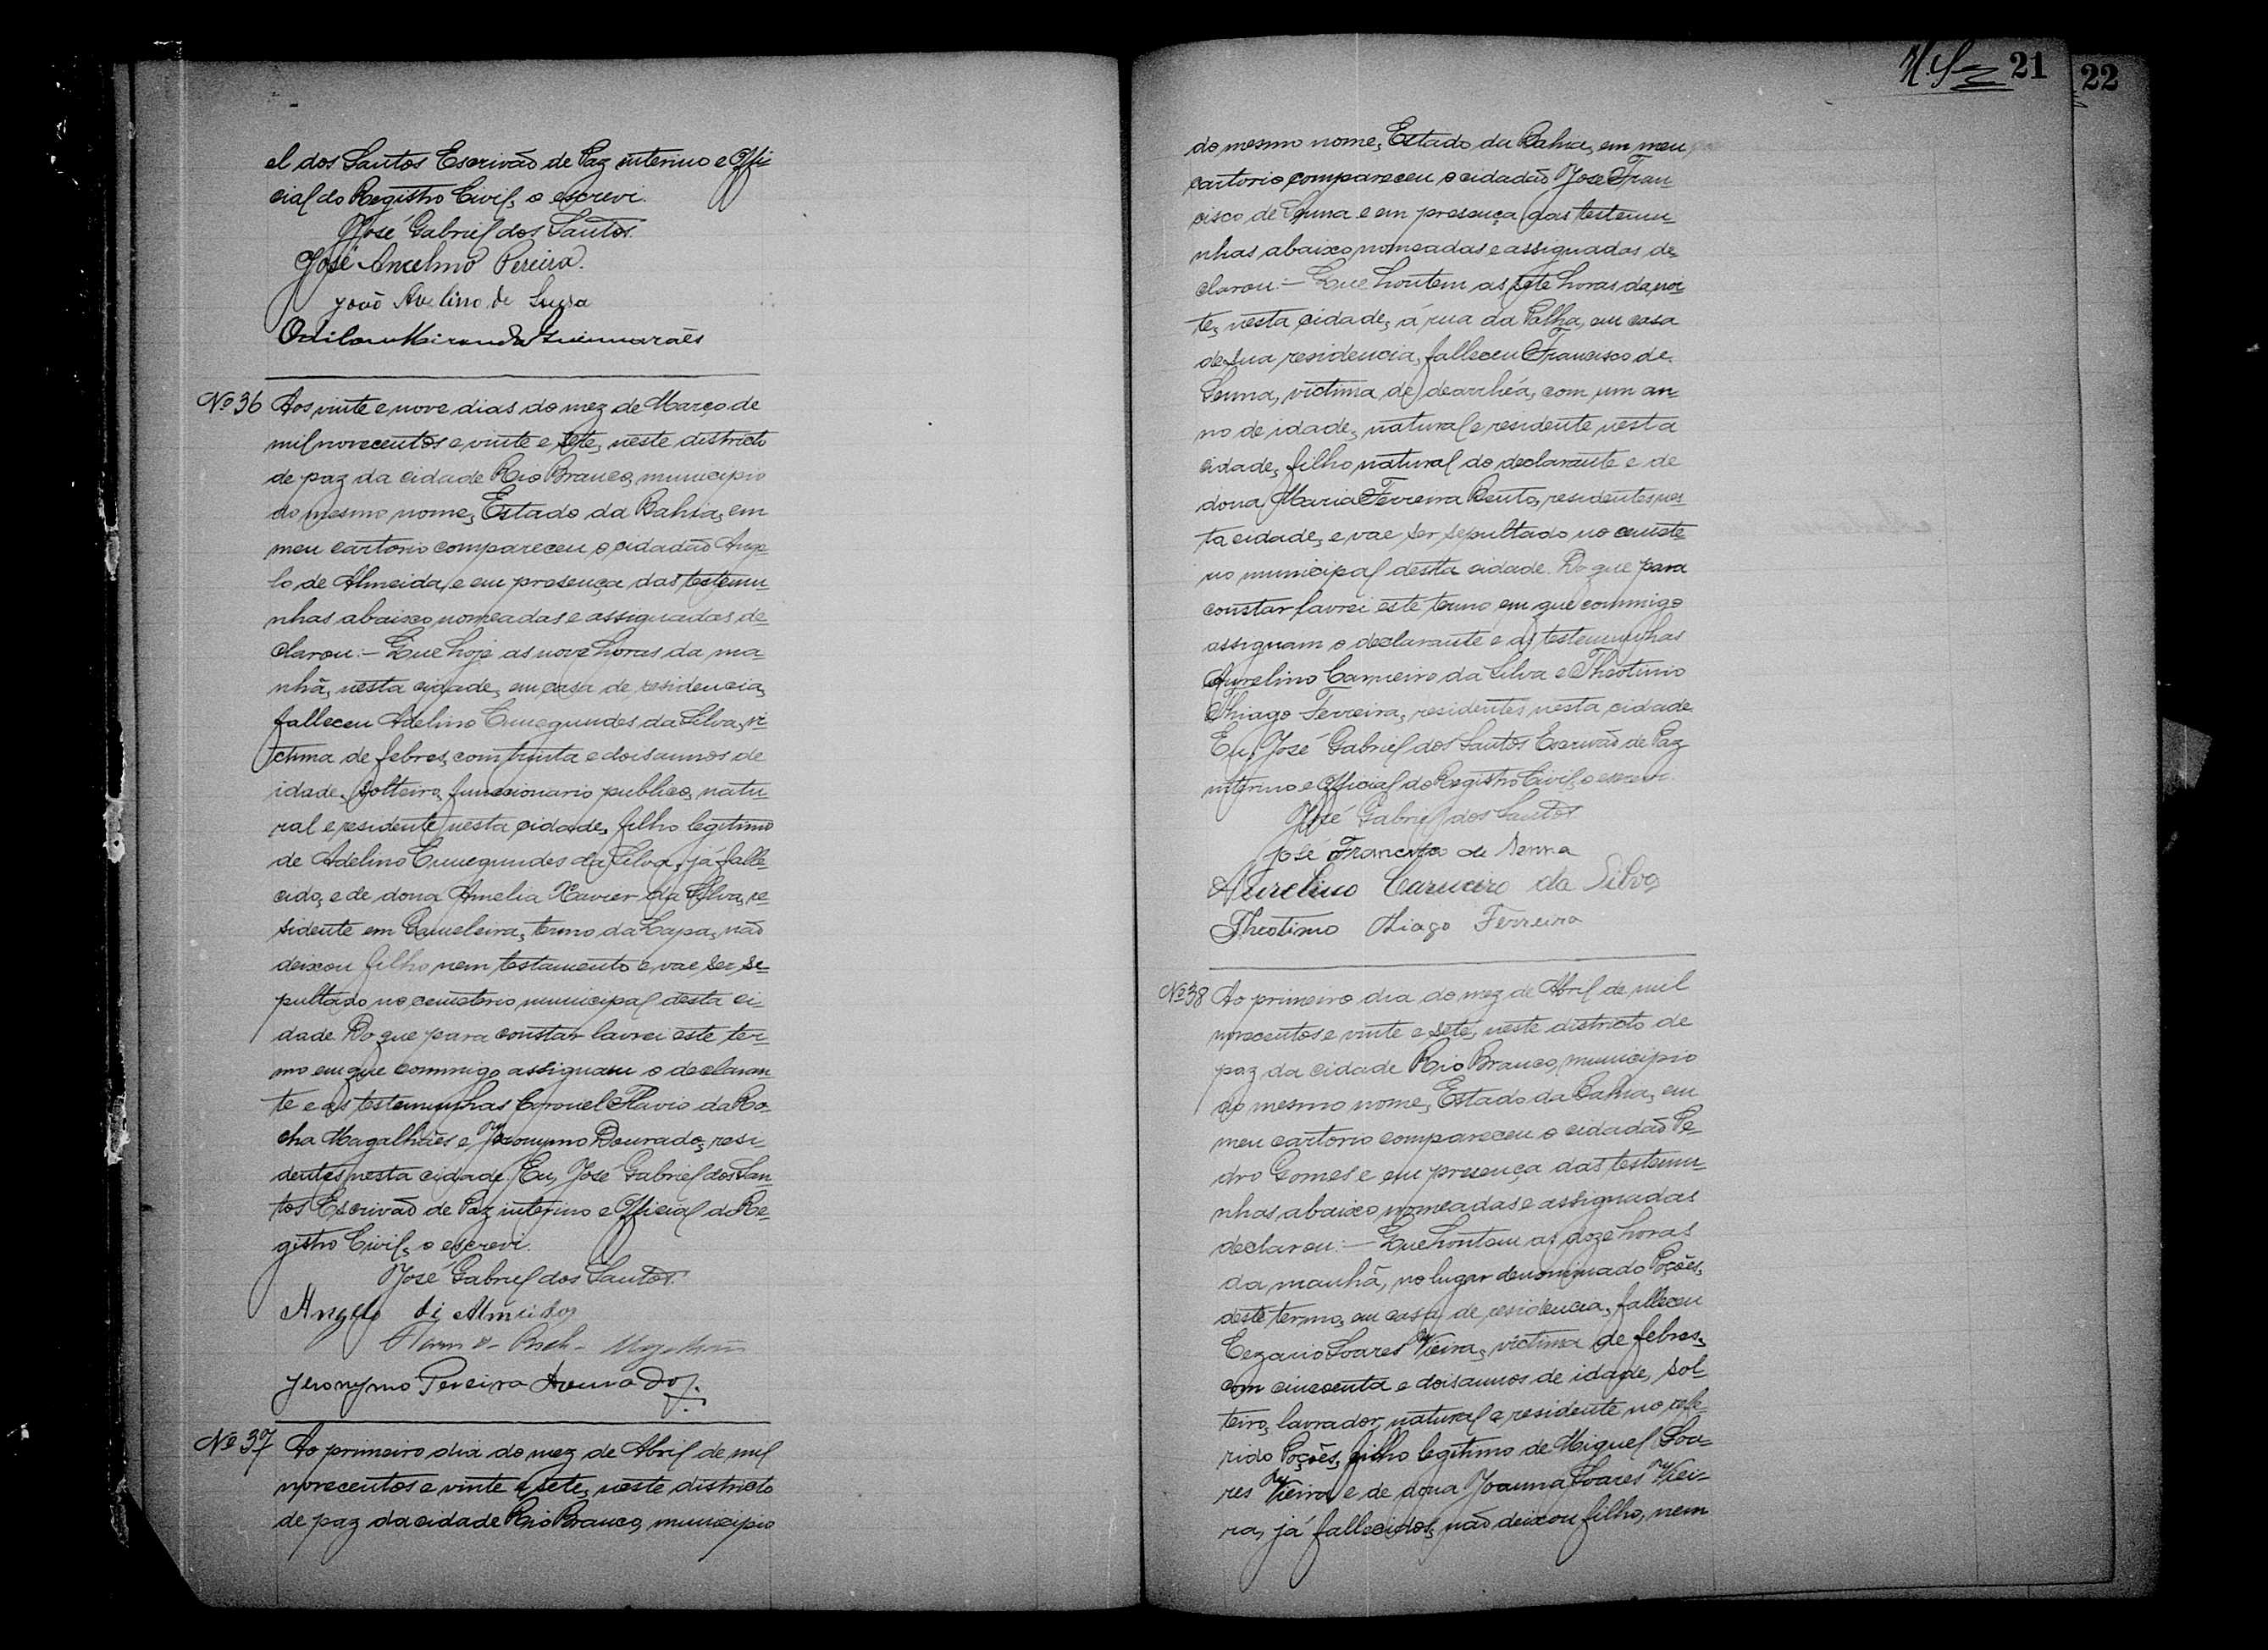 el dos Santos Escrivão de Paz interino e Offi-
cial do Registro Civil, o escrevi.
José Gabriel dos Santos.
José Ancelmo Pereira.
João Avelino de Sousa
Odilon Miranda Guimarães
Nº 36 Aos vinte e nove dias do mez de Março de
mil novecentos e vinte e sete, neste districto
de paz da cidade Rio Branco, municipio
do mesmo nome, Estado da Bahia, em
meu cartorio compareceu o cidadão Ange-
lo de Almeida, e em presença das testemu-
nhas abaixo nomeadas e assignadas de-
clarou:- Que hoje as nove horas da ma-
nhã, nesta cidade, em casa de residencia,
falleceu Adelino Cunegundes da Silva, vi-
ctima de febres, com trinta e dois annos de
idade, solteiro, funccionario publico, natu-
ral e residente nesta cidade, filho legitimo
de Adelino Cunegundes da Silva, já falle-
cido, e de dona Amelia Xavier da Silva, re-
sidente em Gameleira, termo da Lapa, não
deixou filho nem testamento e vae ser se-
pultado no cemeterio municipal desta ci-
dade. Do que para constar lavrei este ter-
mo em que commigo assignam o declaran-
te e as testemunhas Coronel Flavio da Ro-
cha Magalhães e Jeronymo Dourado, resi-
dentes nesta cidade. Eu, José Gabriel dos San-
tos Escrivão de Paz interino e Official do Re-
gistro Civil, o escrevi.
José Gabriel dos Santos.
Angelo di Almeida
Jeronymo Pereira Dourado
Nº 37 Ao primeiro dia do mez de Abril de mil
novecentos e vinte e sete, neste districto
de paz da cidade Rio Branco, municipio
21
22
do mesmo nome, Estado da Bahia, em meu
cartorio compareceu o cidadão José Fran-
cisco de Senna e em presença das testemu-
nhas abaixo nomeadas e assignadas de-
clarou:- Que hontem as sete horas da noi-
te, nesta cidade, á rua da Palha, em casa
de sua residencia, falleceu Francisco de
Senna, victima de dearrhéa, com um an-
no de idade, natural e residente nesta
cidade, filho natural do declarante e de
dona Maria Ferreira Bento, residentes nes-
ta cidade, e vae ser sepultado no cemite-
rio municipal desta cidade. Do que para
constar lavrei este termo em que commigo
assignam o declarante e as testemunhas
Aurelino Carneiro da Silva e Theotimo
Thiago Ferreira, residentes nesta cidade
Eu, José Gabriel dos Santos Escrivão de Paz
interino e Official do Registro Civil, o escrevi.
José Gabriel dos Santos
José Francisco de Senna
Aurelino Carneiro da Silva
Theotimo Thiago Ferreira
Nº 38 Ao primeiro dia do mez de Abril de mil
novecentos e vinte e sete, neste districto de
paz da cidade Rio Branco, municipio
do mesmo nome, Estado da Bahia, em
meu cartorio compareceu o cidadão Pe-
dro Gomes e em presença das testemu-
nhas abaixo nomeadas e assignadas
declarou:- Que hontem as doze horas
da manhã, no lugar denominado Poções,
deste termo, em casa de residencia, falleceu
Cezario Soares Vieira, victima de febres,
com cincoenta e dois annos de idade, sol-
teiro, lavrador, natural e residente no refe-
rido Poções, filho legitimo de Miguel Soa-
res Vieira e de dona Joanna Soares Viei-
ra, já fallecidos, não deixou filho, nem